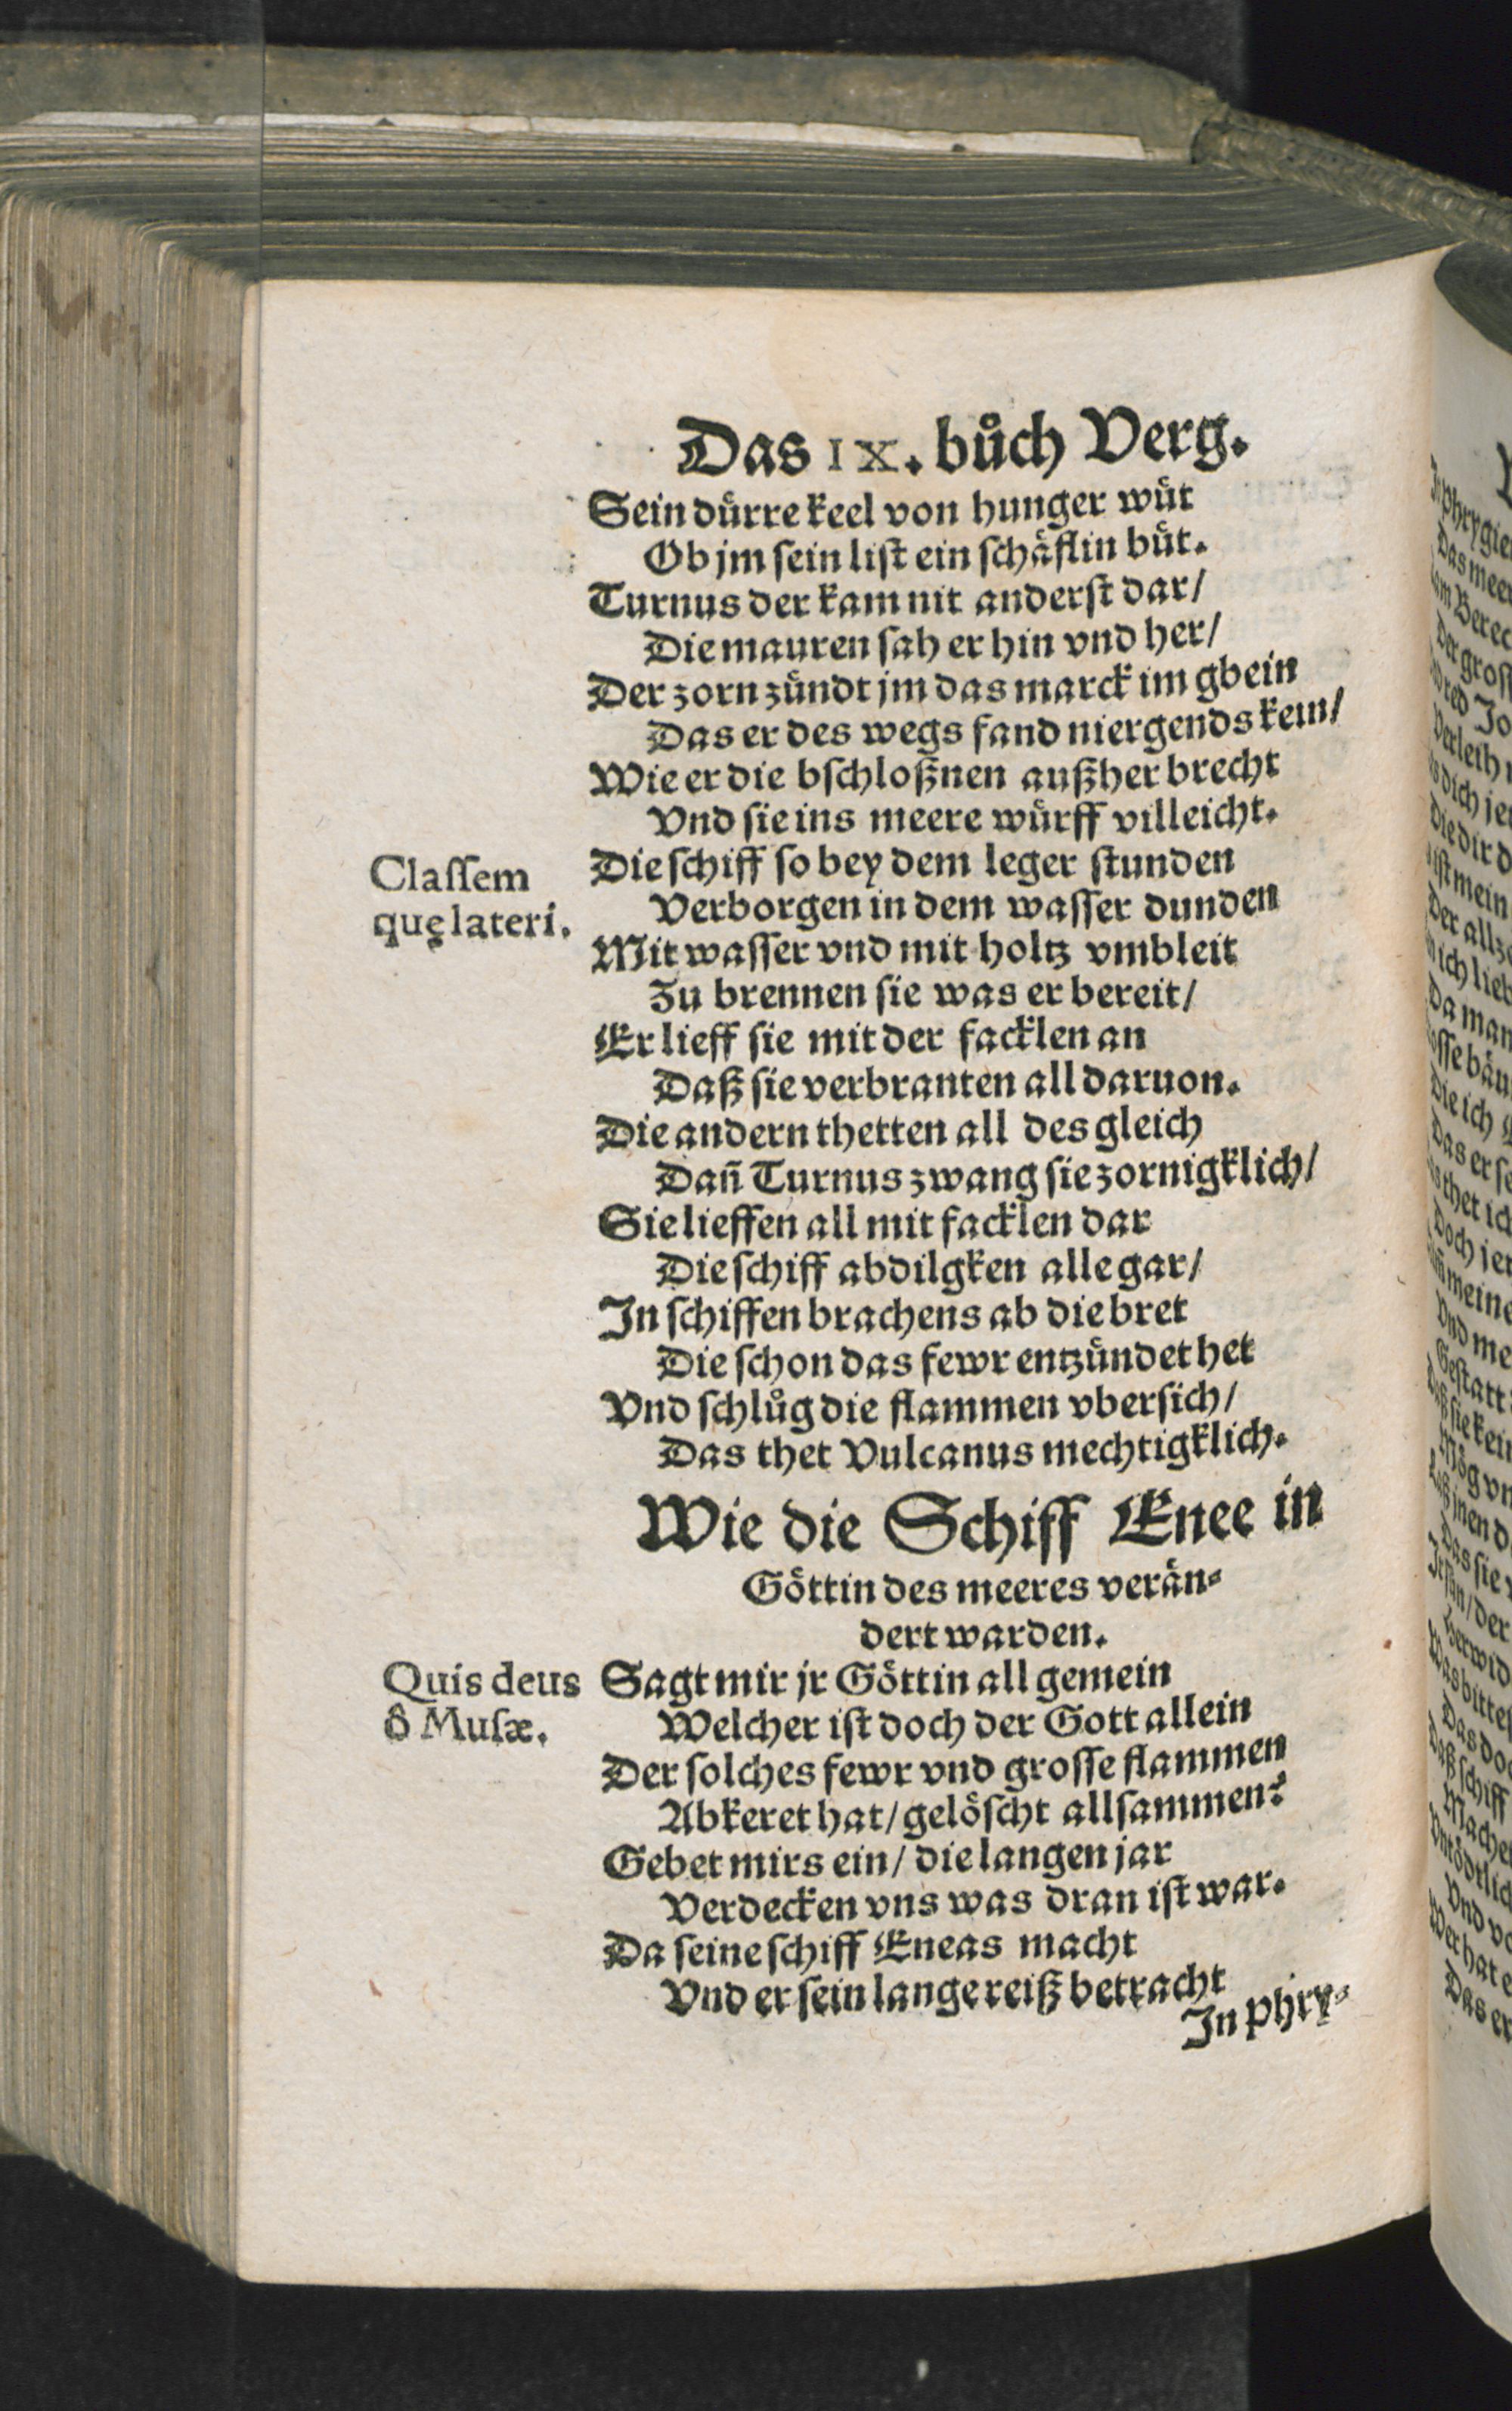 Das IX. bůch Verg.
Sein dürre keel von hunger wüt
Ob jm sein list ein schäflin büt.
Turnus der kam nit anderst dar/
Die mauren sah er hin vnd her/
Der zorn zündt jm das marck im gbein
Das er des wegs fand niergends kein/
Wie er die bschloßnen außher brecht
Vnd sie ins meere würff villeicht.
Classem
quę lateri.
Die schiff so bey dem leger stunden
Verborgen in dem wasser dunden
Mit wasser vnd mit holtz vmbleit
Zu brennen sie was er bereit/
Er lieff sie mit der facklen an
Daß sie verbranten all daruon.
Die andern thetten all des gleich
Dañ Turnus zwang sie zornigklich/
Sie lieffen all mit facklen dar
Die schiff abdilgken alle gar/
In schiffen brachens ab die bret
Die schon das fewr entzündet het
Vnd schlůg die flammen vbersich/
Das thet Vulcanus mechtigklich.
Wie die Schiff Enee in
Göttin des meeres verän⸗
dert warden.
Quis deus
ô Musæ.
Sagt mir jr Göttin all gemein
Welcher ist doch der Gott allein
Der solches fewr vnd grosse flammen
Abkeret hat/ gelöscht allsammen?
Gebet mirs ein/ die langen jar
Verdecken vns was dran ist war.
Da seine schiff Eneas macht
Vnd er sein lange reiß betracht
In Phry⸗